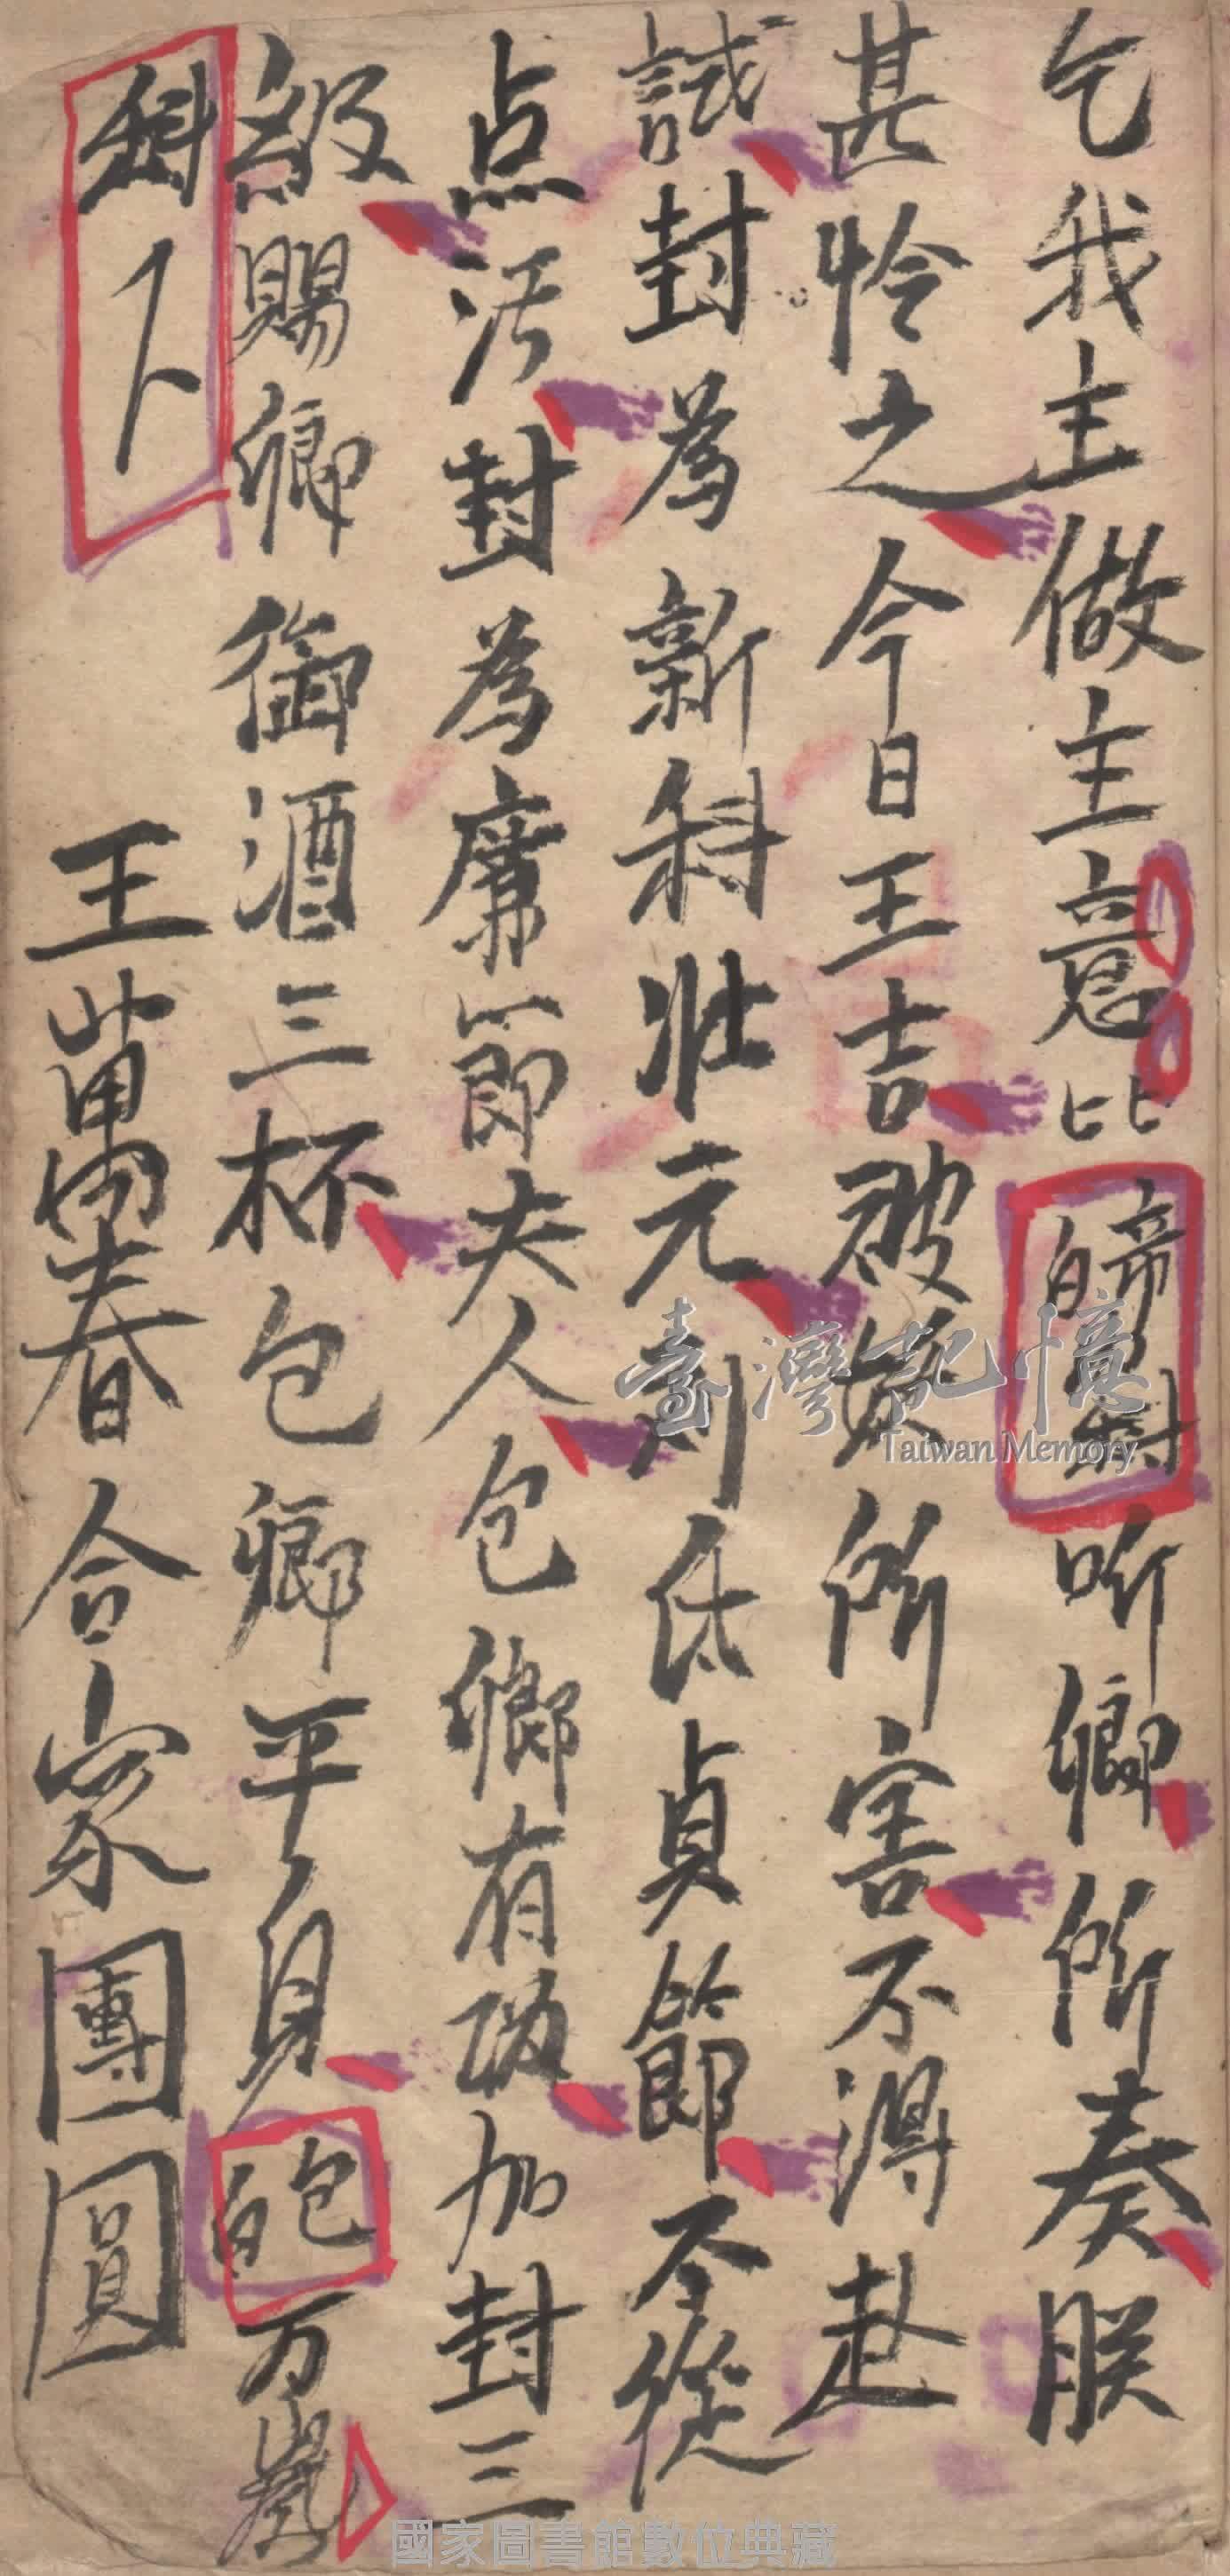 乞我主做主意比 啼 斟 听卿所奏朕
甚怜之今日王吉被嫂所害不得赴
試封為新科壯元刘氏貞節不從
点活封為廉節夫人包卿有功加封三
級賜卿御酒三杯包卿平身 白包 万歲
斟 卜 王萬春合家團圓
臺灣記憶
Taiwan Memory
國家圖書館數位典藏